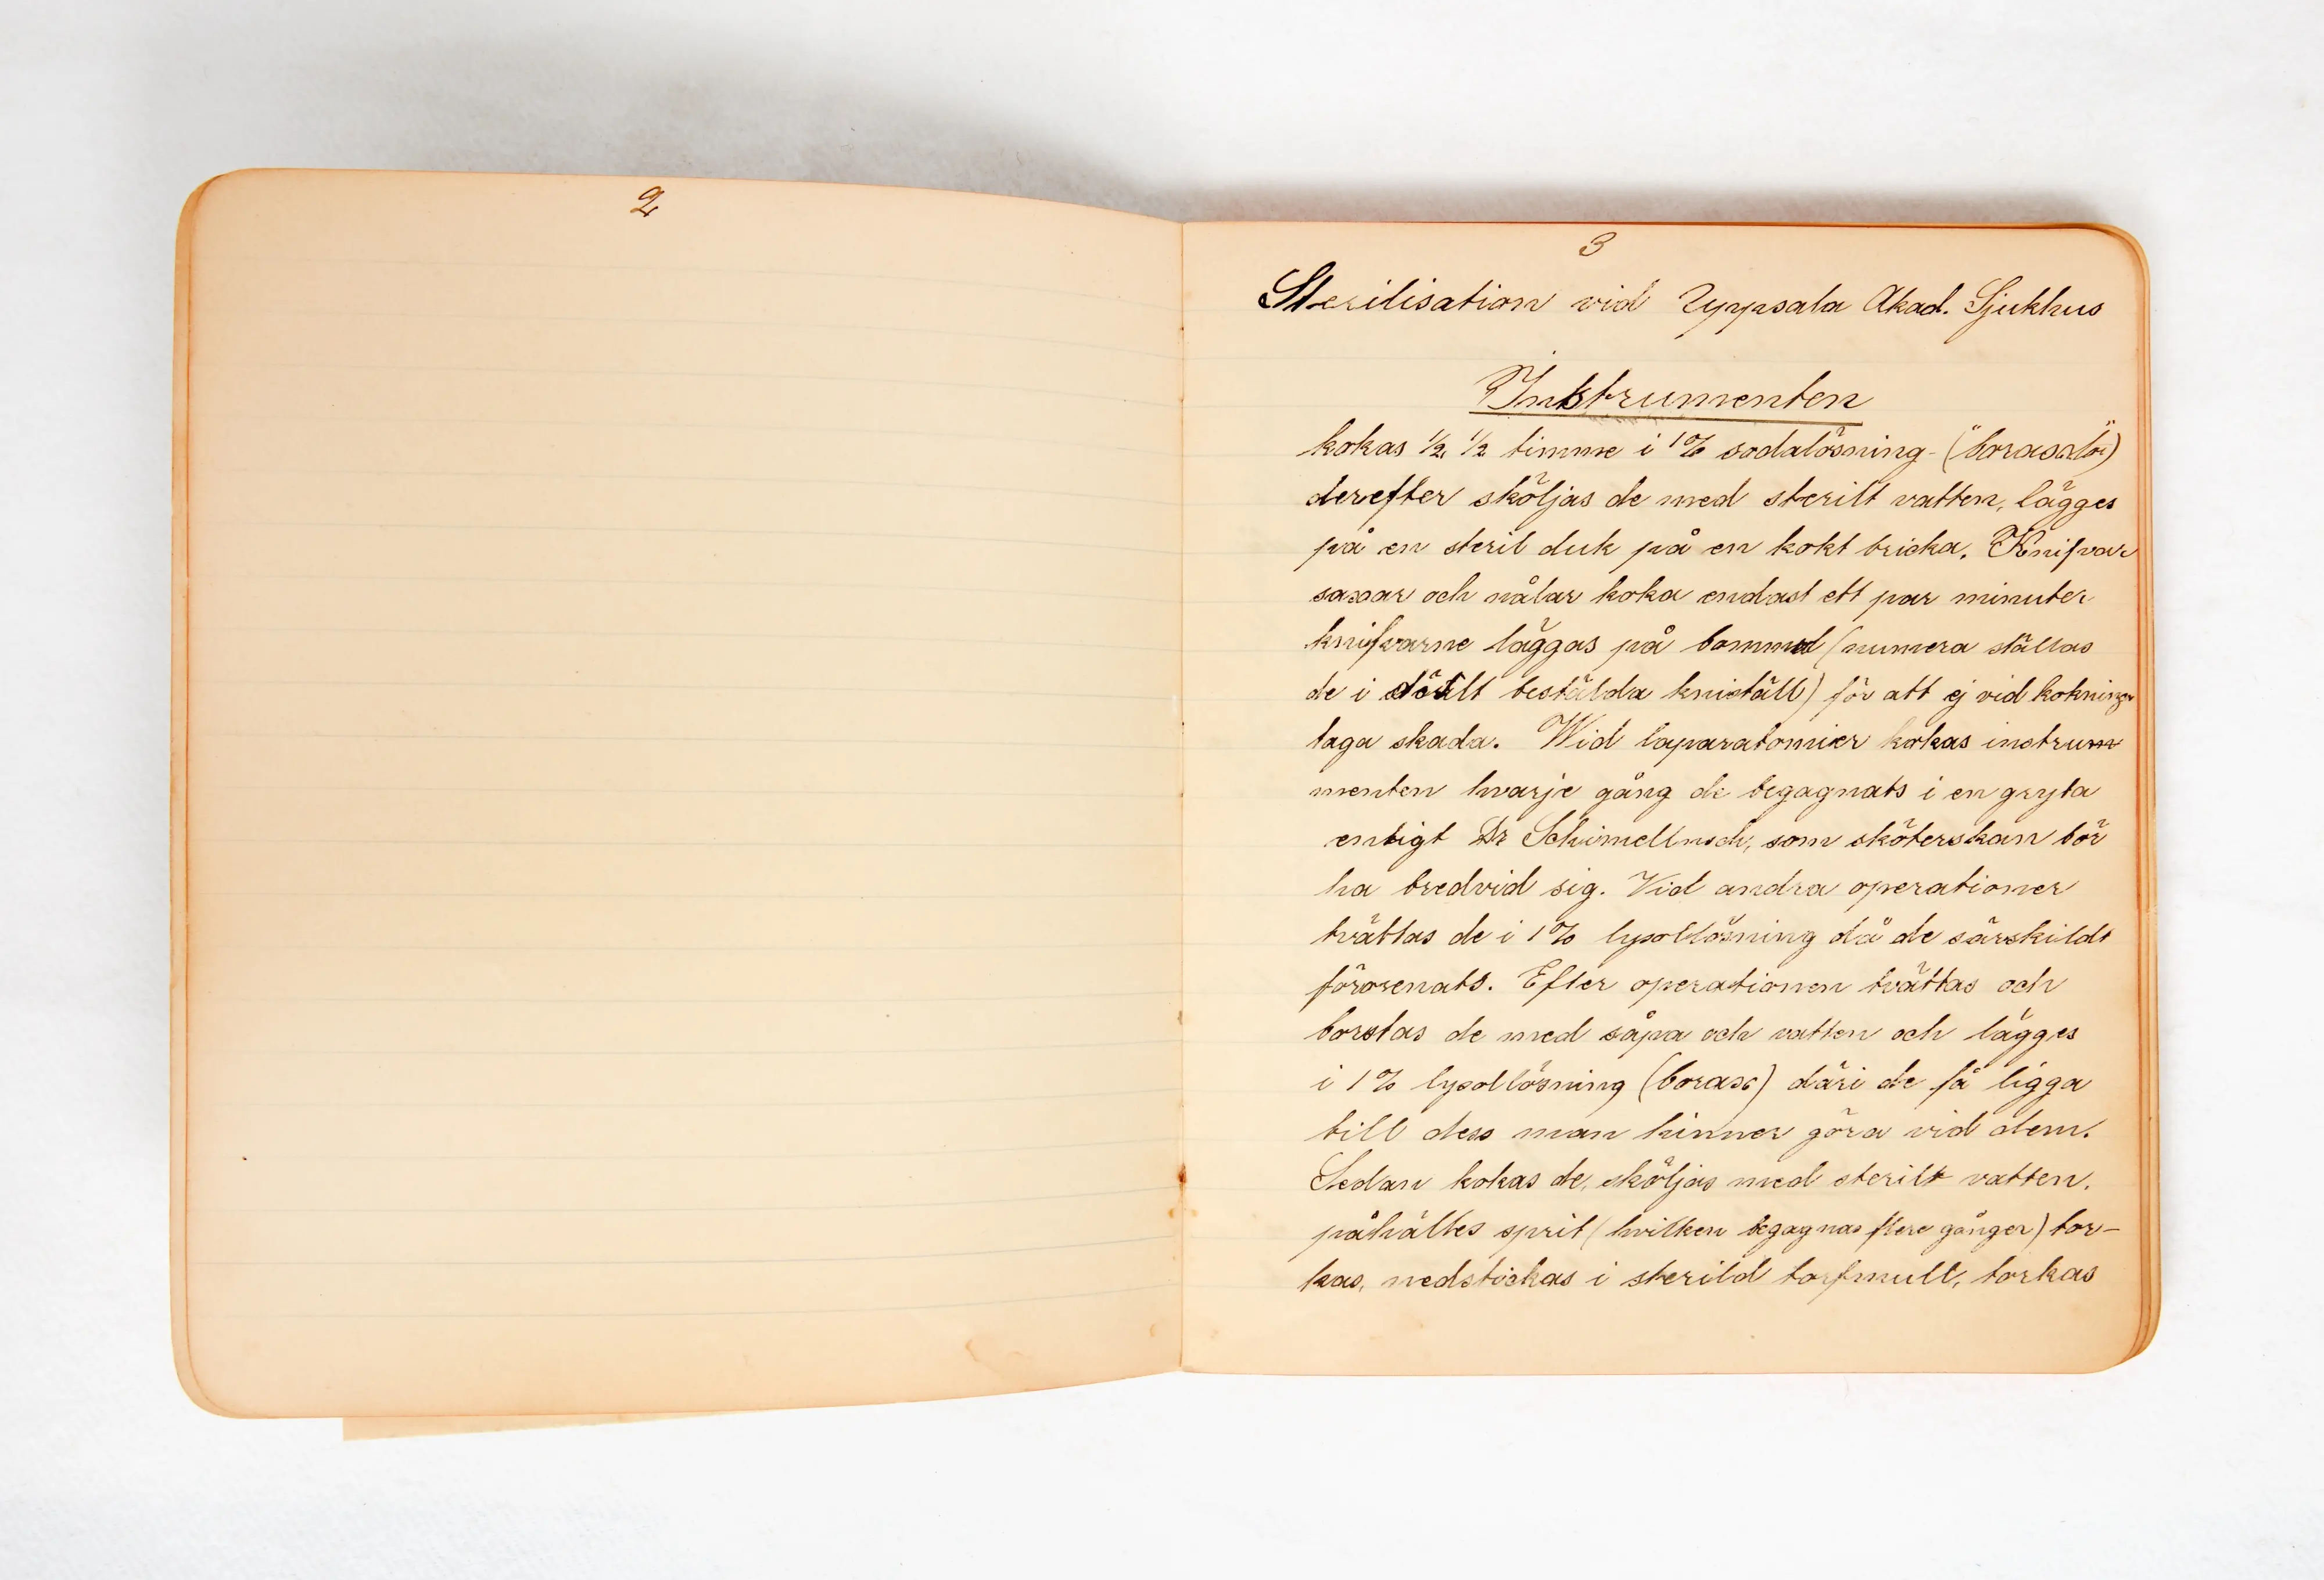 2
3
Sterilisation vid Uppsala Akad. Sjukhus
Instrumenten
kokas ½ ½ timme i 1% sodalösning
derefter sköljas de med sterilt vatten, lägges
på en steril duk på en kokt bricka. Knifvar
saxar och nålar koka endast ett par minuter
knifvarne läggas på bommul (numera ställas
de i bestälda kniställ) för att ej vid kokningen
taga skada. Wid laparatomier kokas instrum
menten hvarje gång de begagnats i en gryta
enligt Dr som sköterskan bör
ha bredvid sig. Vid andra operationer
tvättas de i 1% lysollösning då de särskildt
förorenats. Efter operationen tvättas och
borstas de med såpa och vatten och lägges
i 1% lysollösning (borax) däri de få ligga
till dess man hinner göra vid dem.
Sedan kokas de, sköljas med sterilt vatten.
påhälles sprit (hvilken begagnas flere gånger) tor-
kas, nedstickas i sterild torfmull, torkas